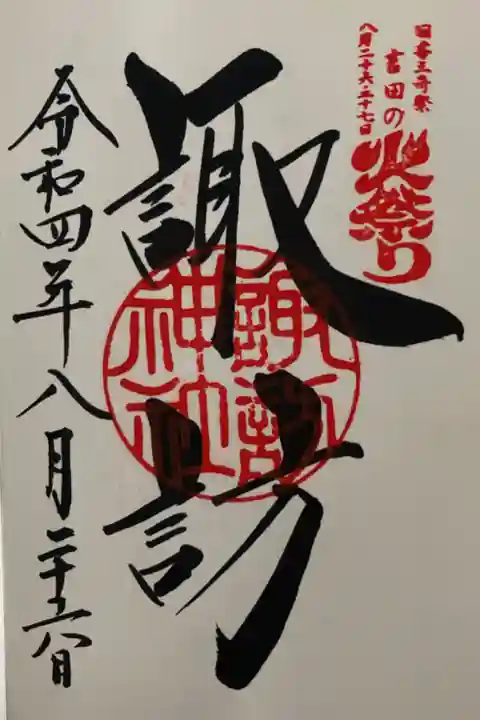 日本三奇祭
吉田の
火祭り
八月二十六・二十七日
諏訪
諏訪
神社
令和四年八月二十六日